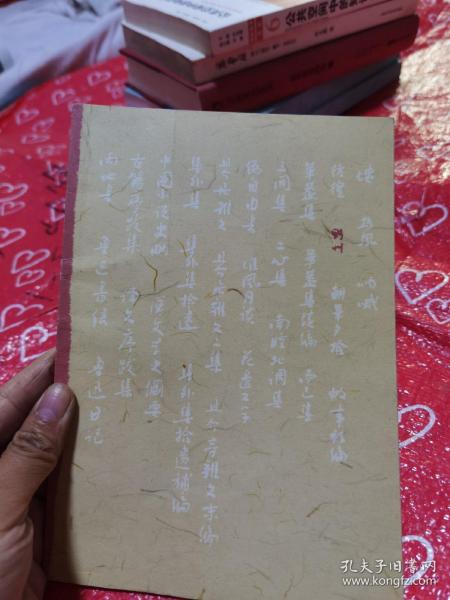 6 公共空间中的
墳 热风 呐喊
彷徨 朝華夕拾 故事新编
華蓋集 華蓋集续编 而已集
三闲集 二心集 南腔北调集
偽自由书 准风月谈 花边文学
且介亭雜文 且介亭雜文二集 且介亭雜文末编
集外集 集外集拾遗 集外集拾遗補编
中国小说史略 汉文学史纲要
古籍序跋集 译文序跋集
两地书 鲁迅书信 鲁迅日记
孔夫子旧书网
www.kongfz.com